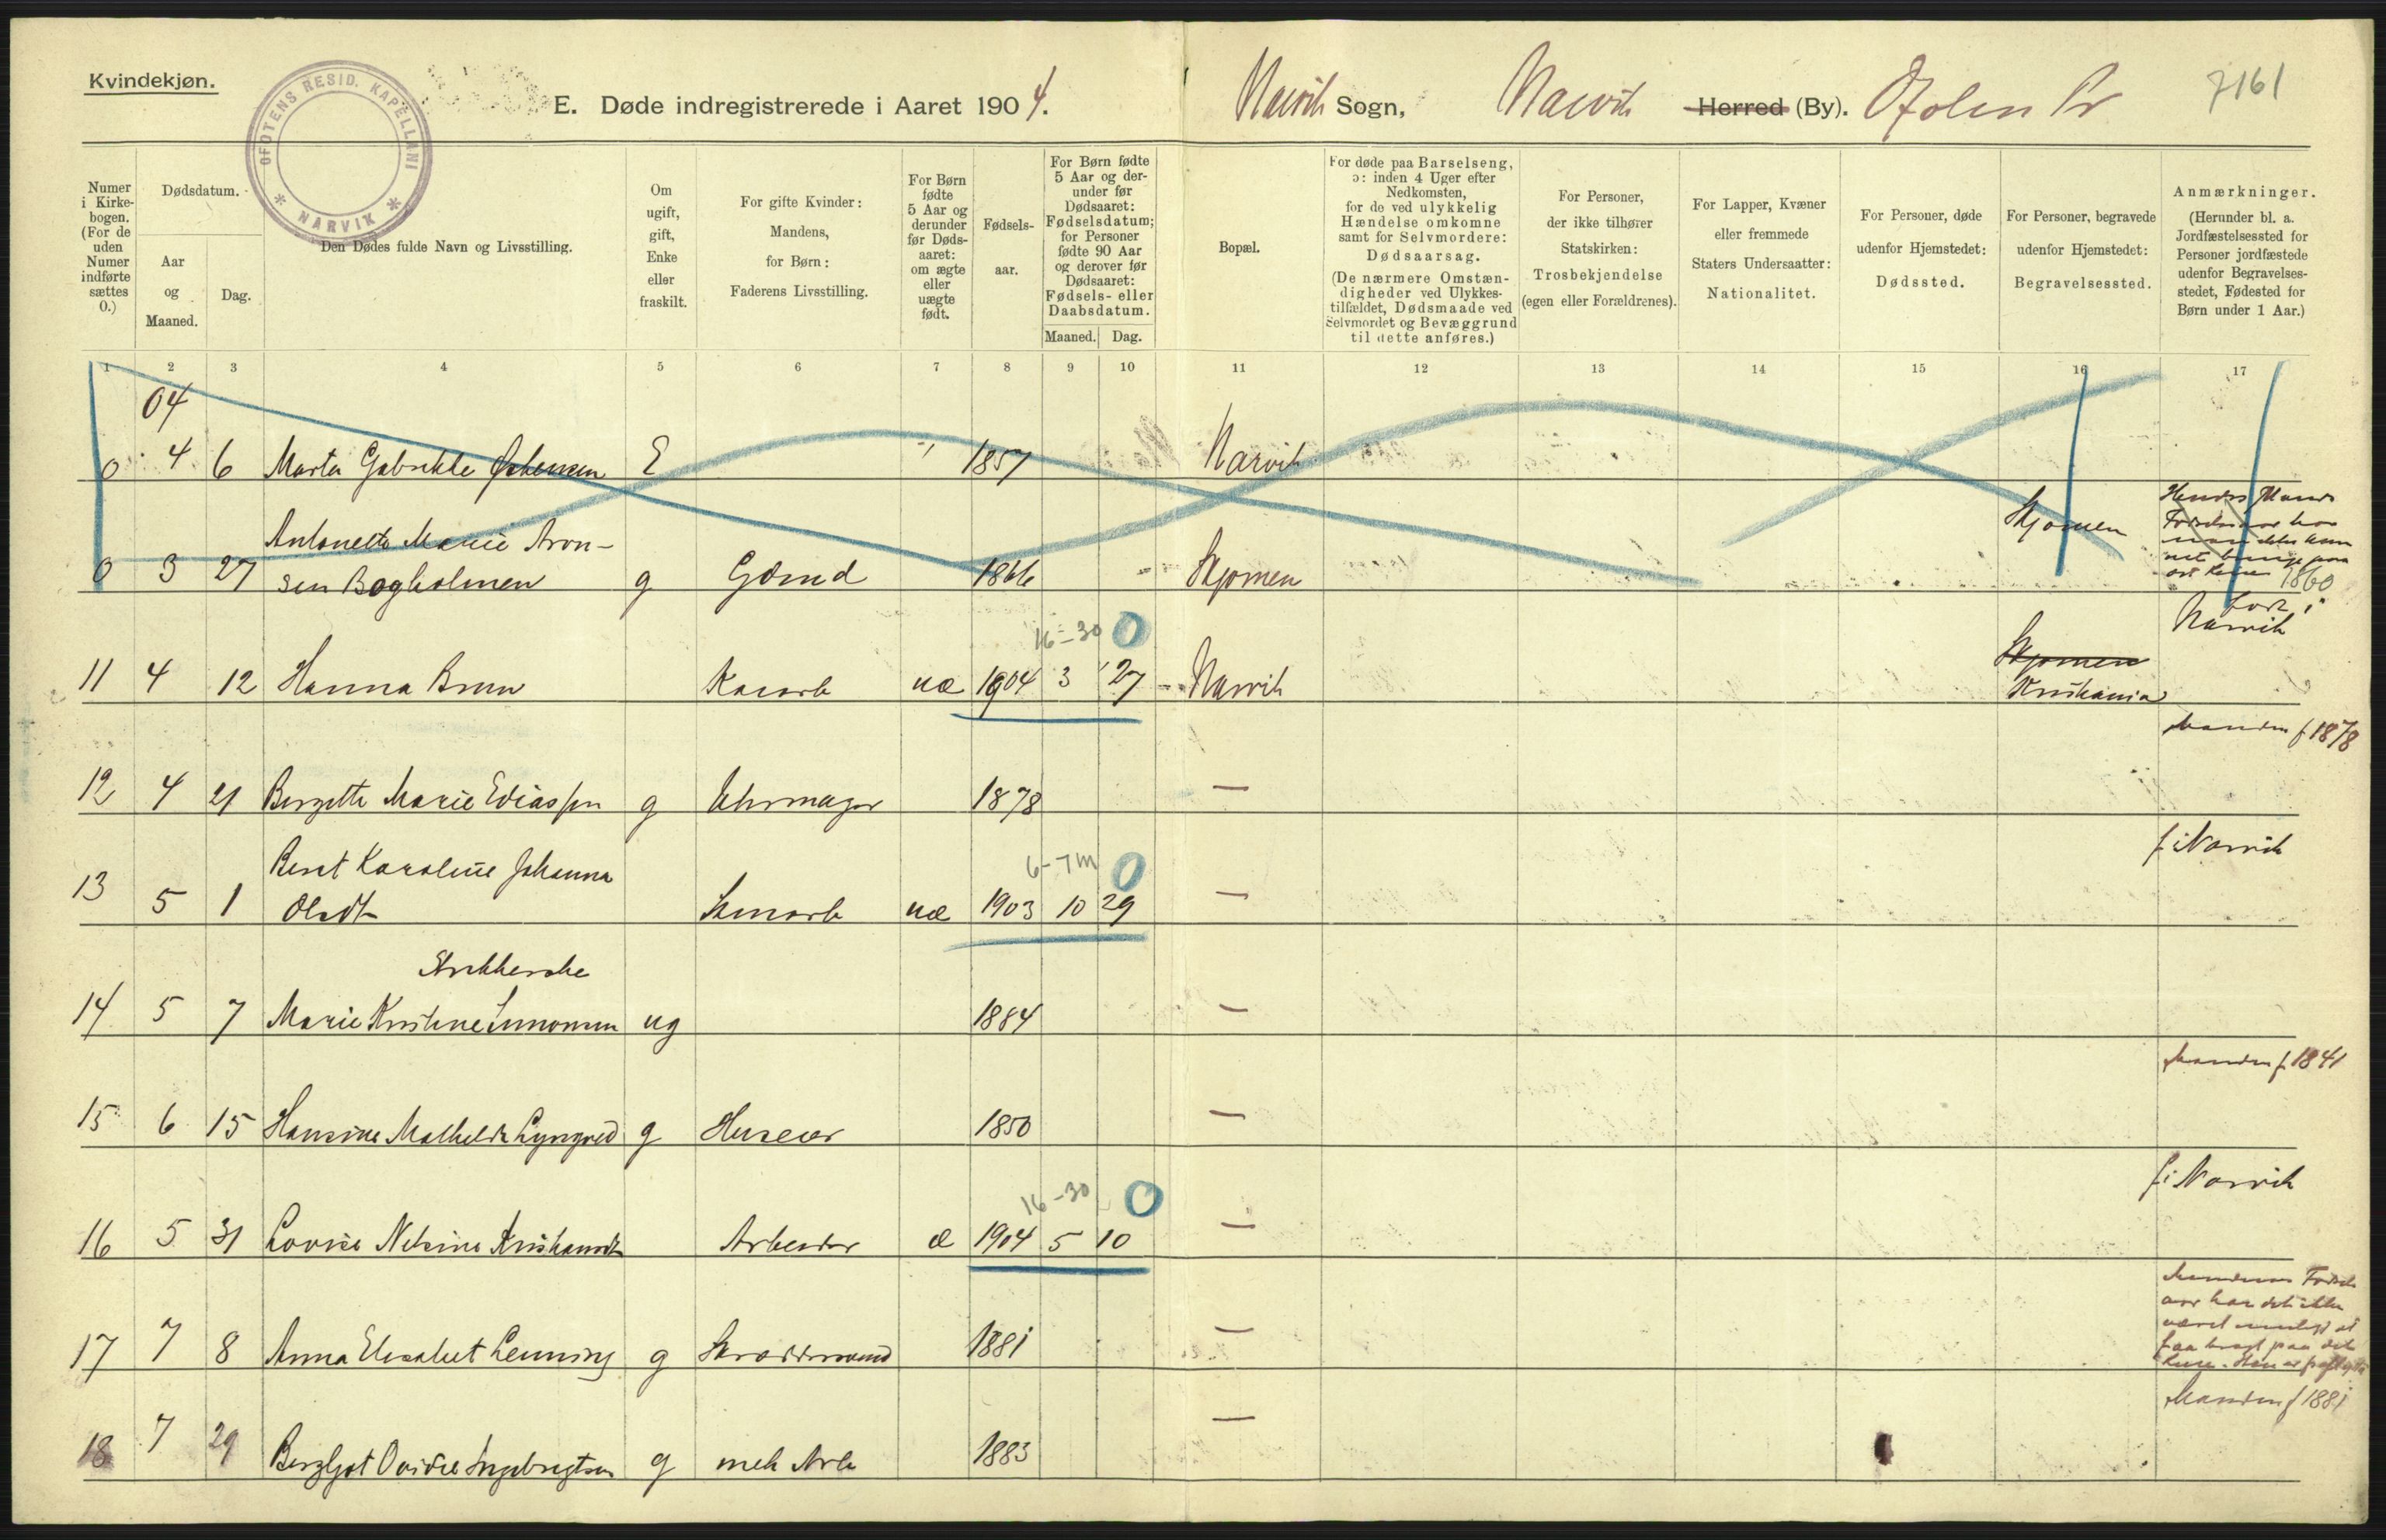 Kvindekjøn.
OFOTENS RESID. KAPELLANI * NARVIK *
E. Døde indregistrerede i Aaret 1904.
Narvik Sogn, Narvik Herred (By). Ofoten Pr
7161
Numer i Kirke-bogen. (For de uden Numer indførte sættes 0.)
Dødsdatum.
Aar og Maaned.
Dag.
Den Dødes fulde Navn og Livsstilling.
Om ugift, gift, Enke eller fraskilt.
For gifte Kvinder: Mandens, for Børn: Faderens Livsstilling.
For Børn fødte 5 Aar og derunder før Døds-aaret: om ægte eller uægte født.
Fødsels-aar.
For Børn fødte 5 Aar og der-under før Dødsaaret: Fødselsdatum; for Personer fødte 90 Aar og derover før Dødsaaret: Fødsels- eller Daabsdatum.
Maaned. Dag.
Bopæl.
For døde paa Barselseng, ɔ: inden 4 Uger efter Nedkomsten, for de ved ulykkelig Hændelse omkomne samt for Selvmordere: Dødsaarsag.
(De nærmere Omstæn-digheder ved Ulykkes-tilfældet, Dødsmaade ved Selvmordet og Bevæggrund til dette anføres.)
For Personer, der ikke tilhører Statskirken: Trosbekjendelse (egen eller Forældrenes).
For Lapper, Kvæner eller fremmede Staters Undersaatter: Nationalitet.
For Personer, døde udenfor Hjemstedet: Dødssted.
For Personer, begravede udenfor Hjemstedet: Begravelsessted.
Anmærkninger. (Herunder bl. a. Jordfæstelsessted for Personer jordfæstede udenfor Begravelses-stedet, Fødested for Børn under 1 Aar.)
1 2 3 4 5 6 7 8 9 10 11 12 13 14 15 16 17
04
0 4 6 Marta Gabrikke E 1857 Narvik
Antonette Marie Aron-
0 3 27 sen Bogholmen g Gdmd 1866 Skjomen Skjomen
1860
født i
Narvik
16-30 0
11 4 12 Hanna Brun uæ 1904 3 27 Narvik Skjomen
Kristiania
Manden f 1878
12 4 21 Bergitte Marie Eliassen g Uhrmager 1878 —
f. i Narvik
6-7 m 0
Berit Karoline Johanna
13 5 1 Olsdt uæ 1903 10 29 —
Strikkerske
14 5 7 Marie Kristine ug 1884 —
Manden f. 1841
15 6 15 Hansine Mathilde g Huseier 1850 —
f. i Narvik
16-30 0
16 5 31 Lovise Nelsine Kristiansdt Arbeider æ 1904 5 10 —
Mandens Fødsels
aar har det ikke
været muligt at
faa bragt paa det
rene. Han er
17 7 8 Anna Elisabet Lenning g 1881 —
Manden f 1881
18 7 29 Bergljot Ovidie Ingebrigtsen g mek Arb 1883 —